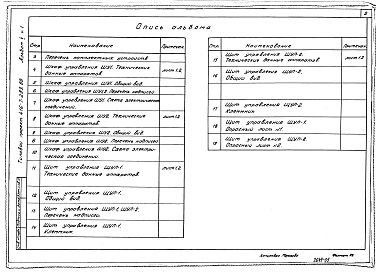 2
Опись альбома
Стр.
Наименование
Примечан.
3
Перечень комплектных устройств
4
Шкаф управления ШУ1. Технические
данные аппаратов.
лист 1.2
5
Шкаф управления ШУ1. Общий вид.
6
7
Шкаф управления ШУ1. Схема электрических
соединений.
8
Шкаф управления ШУ2. Технические
данные аппаратов.
лист 1.2
9
Шкаф управления ШУ2. Общий вид.
9
Шкаф управления ШУ2. Перечень надписей
10
Шкаф управления ШУ2. Схема электри-
ческих соединений.
11
Щит управления ЩУП-1.
Технические данные аппаратов
лист 1.2
12
Щит управления ЩУП-1.
Общий вид.
13
Щит управления ЩУП-1, ЩУП-2.
Перечень надписей.
14
Щит управления ЩУП-1.
Клеммник.
Стр.
Наименование
Примечан.
15
Щит управления ЩУП-2.
Технические данные аппаратов
лист 1.2
16
Щит управления ЩУП-2.
Общий вид.
17
Щит управления ЩУП-2
Клеммник
18
Щит управления ЩУП-1.
Опросный лист №1.
19
Щит управления ЩУП-2.
Опросный лист №2.
Альбом
Типовой проект
Копировал
Формат